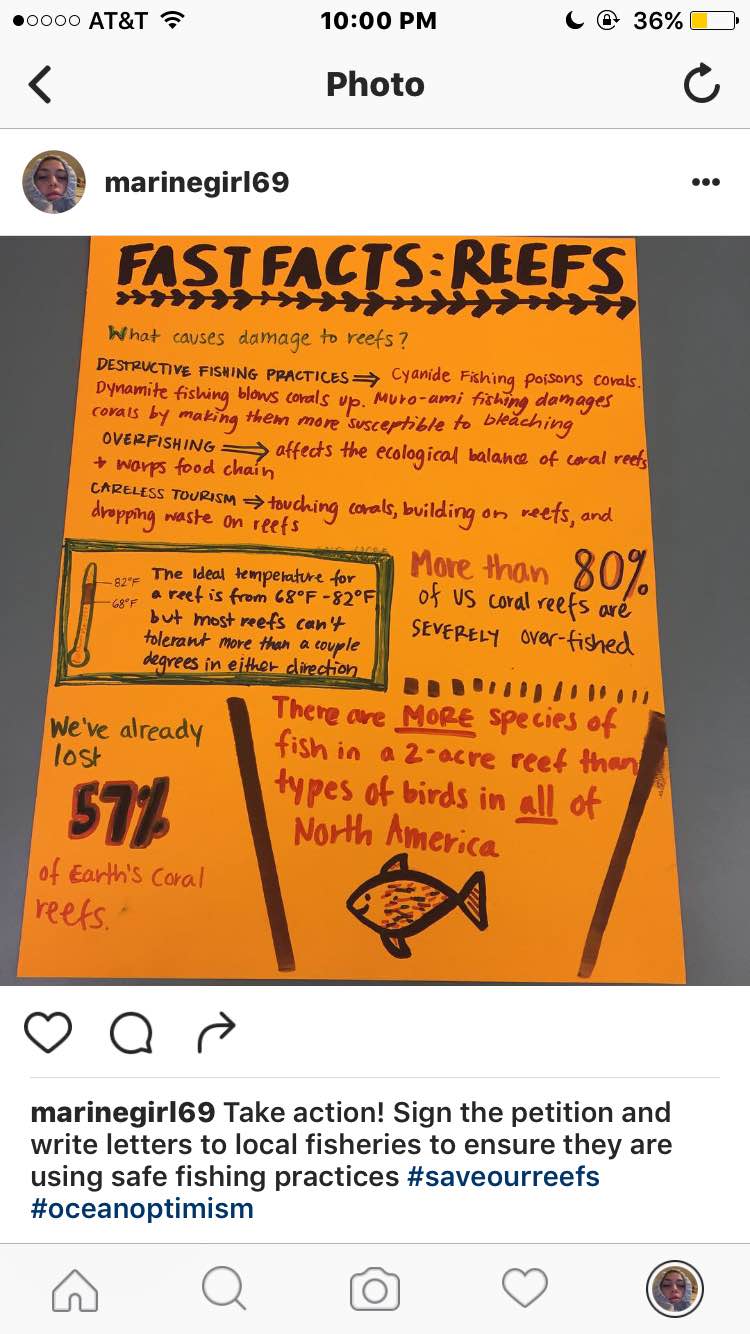 AT&T 10:00 PM 36%
Photo
marinegirl69
FAST FACTS: REEFS
What causes damage to reefs?
DESTRUCTIVE FISHING PRACTICES ⇒ Cyanide Fishing poisons corals.
Dynamite fishing blows corals up. Muro-ami fishing damages
corals by making them more susceptible to bleaching
OVERFISHING ⇒ affects the ecological balance of coral reefs
+ warps food chain
CARELESS TOURISM ⇒ touching corals, building on reefs, and
dropping waste on reefs
82°F
68°F
The ideal temperature for
a reef is from 68°F - 82°F
but most reefs can't
tolerant more than a couple
degrees in either direction
More than 80%
of US coral reefs are
SEVERELY over-fished
We've already
lost
57%
of Earth's coral
reefs.
There are MORE species of
fish in a 2-acre reef than
types of birds in all of
North America
marinegirl69 Take action! Sign the petition and
write letters to local fisheries to ensure they are
using safe fishing practices #saveourreefs
#oceanoptimism